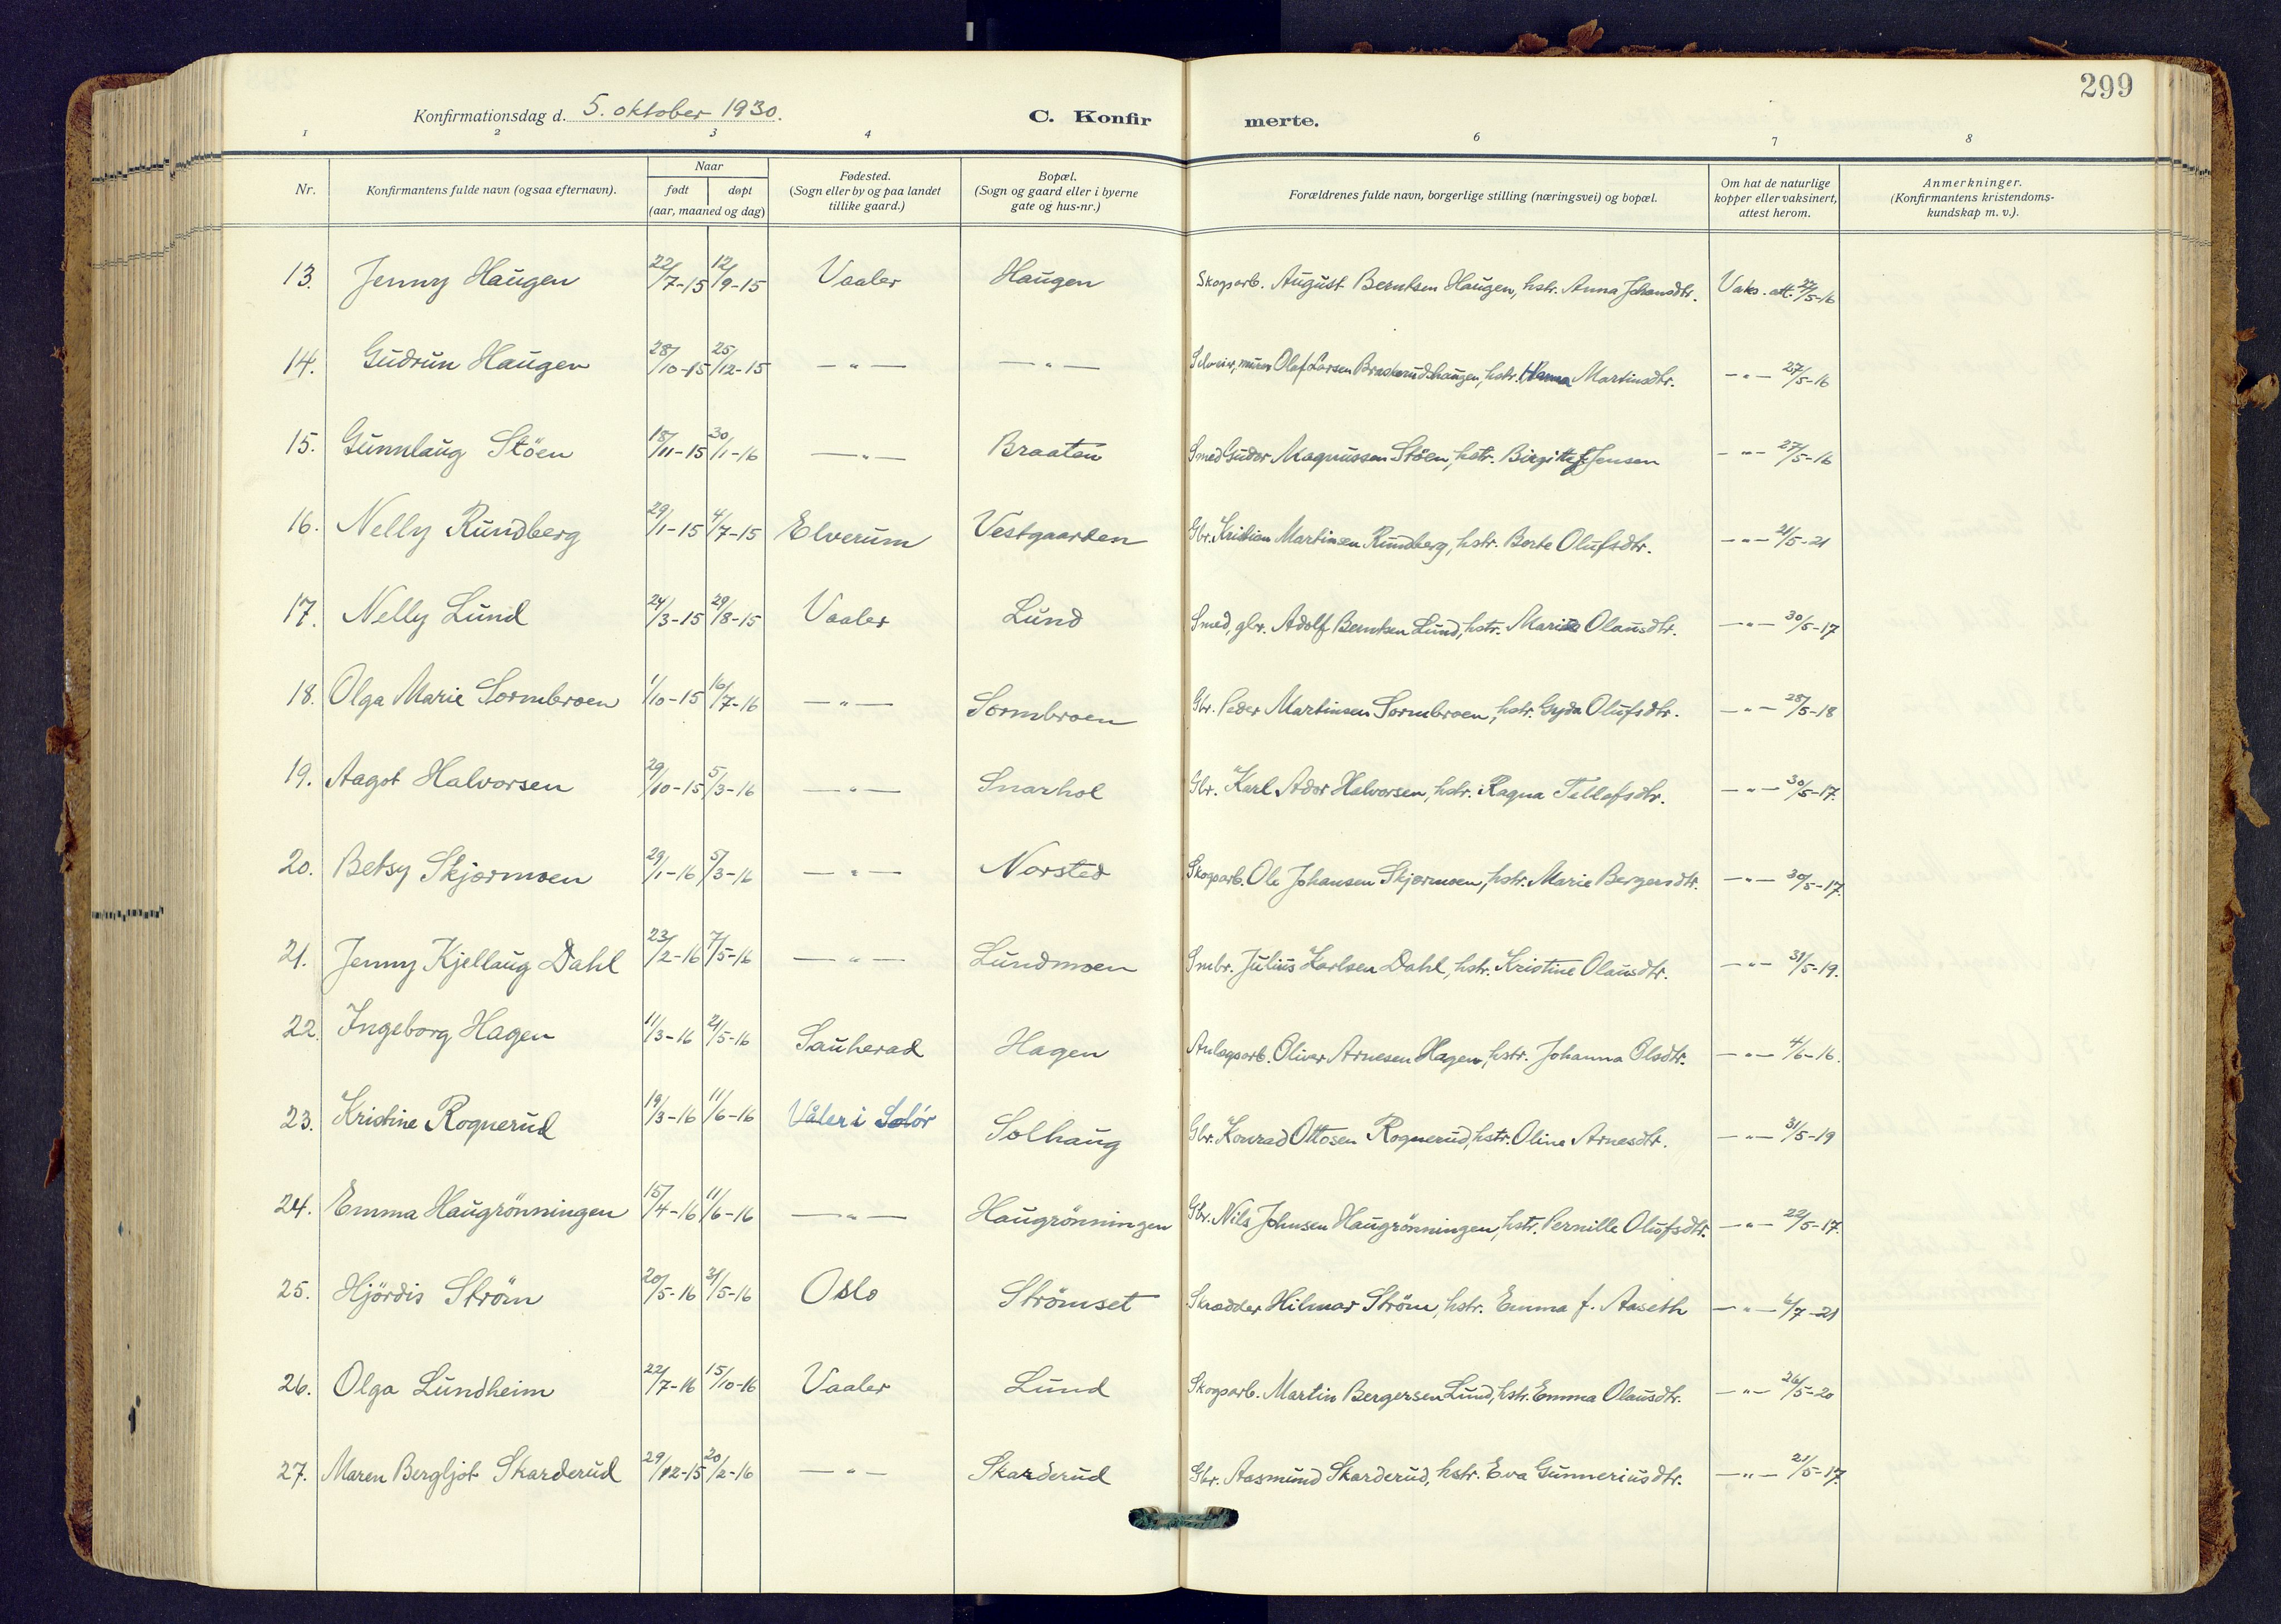 299
Konfirmationsdag d. 5. oktober 1930.
C. Konfir merte.
1 2 3 4 6 7 8
Nr.
Konfirmantens fulde navn (ogsaa efternavn).
Naar
født døpt
(aar, maaned og dag)
Fødested.
(Sogn eller by og paa landet
tillike gaard.)
Bopæl.
(Sogn og gaard eller i byerne
gate og hus-nr.)
Forældrenes fulde navn, borgerlige stilling (næringsvei) og bopæl.
Om hat de naturlige
kopper eller vaksinert,
attest herom.
Anmerkninger.
(Konfirmantens kristendoms-
kundskap m. v.).
13. Jenny Haugen 22/7-15 12/9-15 Vaaler Haugen Skogsarb. August Berntsen Haugen, hstr. Anna Johansdtr. Vaks. att. 22/5-16
14. Gudrun Haugen 28/10-15 25/12-15 —"— —"— murer Olaf Larsen hstr. Hanna Martinsdtr. —"— 27/5-16
15. Gunnlaug Stöen 18/11-15 30/1-16 —"— Braaten Smed Gudor Magnussen Stöen, hstr. Birgitte f. Jensen —"— 27/5-16
16. Nelly Rundberg 29/1-15 4/7-15 Elverum Vestgaarden Gbr. Kristian Martinsen Rundberg, hstr. Berte Olufsdtr. —"— 21/5-21
17. Nelly Lund 24/3-15 29/8-15 Vaaler Lund Smed, gbr. Adolf Berntsen Lund, hstr. Marie Olausdtr. —"— 30/5-17
18. Olga Marie Sormbroen 1/10-15 16/7-16 —"— Sormbroen Gbr. Peder Martinsen Sormbroen, hstr. Gyda Olufsdtr. —"— 28/5-18
19. Aagot Halvorsen 29/10-15 5/3-16 —"— Snarhol Gbr. Karl Ador Halvorsen, hstr. Ragna Tellefsdtr. —"— 30/5-17.
20. Betsy Skjærmoen 29/1-16 5/3-16 —"— Norsted Skogsarb. Ole Johansen Skjærmoen, hstr. Marie Bergersdtr. —"— 30/5-17.
21. Jenny Kjellaug Dahl 23/2-16 7/5-16 —"— Lundmoen Smbr. Julius Karlsen Dahl, hstr. Kristine Olausdtr. —"— 31/5-19.
22. Ingeborg Hagen 11/3-16 21/5-16 Sauherad Hagen Anlægsarb. Oliver Arnesen Hagen, hstr. Johanna Olsdtr. —"— 4/6-16.
23. Kristine Rognerud 19/3-16 11/6-16 Våler i Solör Solhaug Gbr. Konrad Ottosen Rognerud, hstr. Oline Arnesdtr. —"— 31/5-19
24. Emma Haugrönningen 15/4-16 11/6-16 —"— Haugrönningen Gbr. Nils Johnsen Haugrönningen, hstr. Pernille Olufsdtr. —"— 22/5-17.
25. Hjördis Ström 20/5-16 31/5-16 Oslo Strömset Skrædder Hilmar Ström, hstr. Emma f. Aaseth —"— 6/7-21
26. Olga Lundheim 22/7-16 15/10-16 Vaaler Lund Skogsarb. Martin Bergersen Lund, hstr. Emma Olausdtr. —"— 26/5-20
27. Maren Bergljot Skarderud 29/12-15 20/2-16 —"— Skarderud Gbr. Aasmund Skarderud, hstr. Eva Gunneriusdtr. —"— 21/5-17.